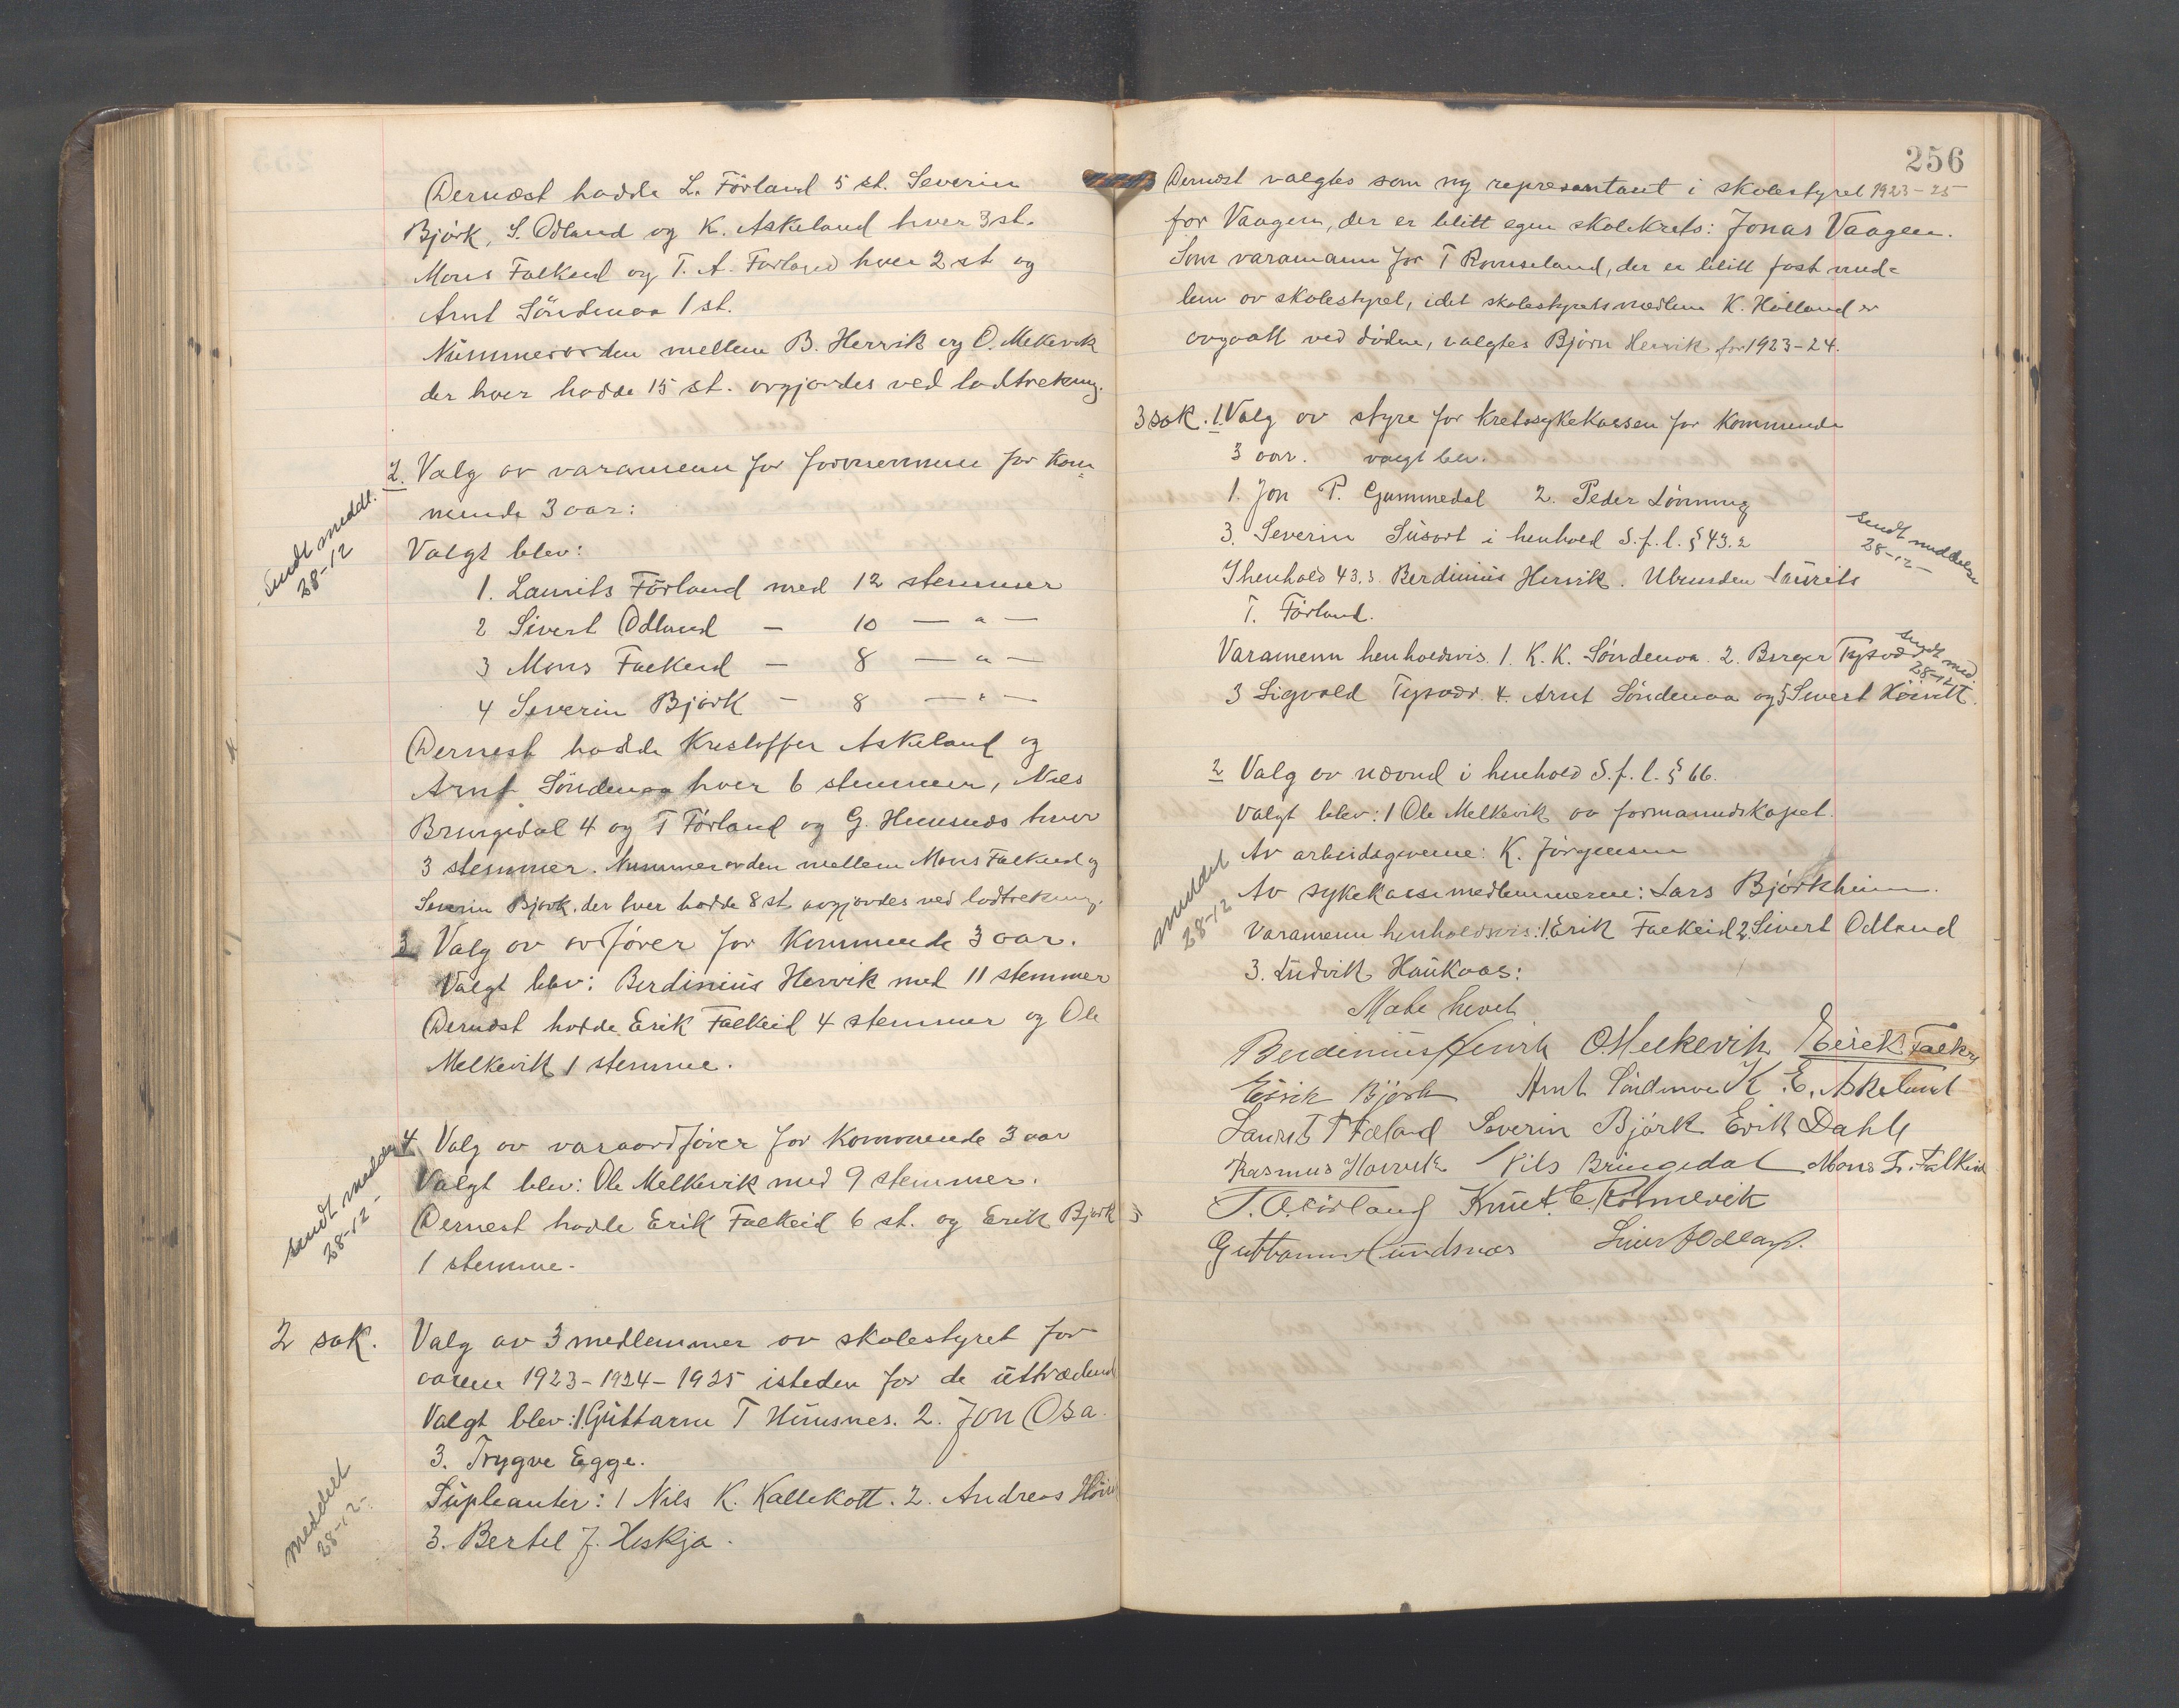 Dernæst hadde L. Förland 5 st. Severin
Björk, S. Odland og K. Askeland hver 3 st.
Mons Falkeid og T. A. Förland hver 2 st og
Arnt Söndenaa 1 st.
Nummerorden mellem B. Hervik og O. Melkevik
der hver hadde 15 st. avgjordes ved lodtrekning.
2. Valg av varamenn for formennene for kom-
mende 3 aar:
Sendt meddl.
28-12
Valgt blev:
1. Laurits Förland med 12 stemmer
2 Sivert Odland — 10 — " —
3 Mons Falkeid — 8 — " —
4 Severin Björk — 8 — " —
Dernest hadde Kristoffer Askeland og
Arnt Söndenaa hver 6 stemmer, Nils
Bringedal 4 og T Förland og G. Hundsnæs hver
3 stemmer. Nummerorden mellem Mons Falkeid og
Severin Björk, der hver hadde 8 st. avgjordes ved lodtrekning.
3 Valg av ordfører for kommende 3 aar.
Valgt blev: Berdinius Hervik med 11 stemmer
Dernæst hadde Erik Falkeid 4 stemmer og Ole
Melkevik 1 stemme.
4. Valg av varaordfører for kommende 3 aar
Valgt blev: Ole Melkevik med 9 stemmer.
Sendt meddel
28-12-
Dernest hadde Erik Falkeid 6 st. og Erik Björk
1 stemme.
2 sak. Valg av 3 medlemmer av skolestyret for
aarene 1923-1924-1925 isteden for de uttrædend
Valgt blev: 1. Guttorm T Hunsnes. 2. Jon Osa.
3. Trygve Egge.
Supleanter: 1 Nils K. Kallekott. 2. Andreas
3. Bertel J. Heskja.
meddelt
28-12-
256
Dernæst valgtes som ny representant i skolestyret 1923-25
for Vaagen, der er blitt egen skolekrets: Jonas Vaagen.
Som varamann for T Romseland, der er blitt fast med-
lem av skolestyret, idet skolestyretsmedlem K. Hålland er
avgaatt ved døden, valgtes Bjørn Hervik for 1923-24.
3 sak. 1. Valg av styre for kretssykekassen for kommende
3 aar. valgt blev.
1. Jon P. Gammedal 2. Peder Lönning
3. Severin Susort i henhold S.f.l. § 43.2
Sendt meddelse
28-12-
I henhold 43.3 Berdinius Hervik. Laurits
T. Förland.
Varamenn henholdsvis 1. K. K. Söndenaa. 2. Berger Tysvær
Sendt med.
28-12
3 Sigvald Tysvær. 4. Arnt Söndenaa og 5 Sivert
2 Valg av nævnd i henhold S.f.l. § 66.
Valgt blev: 1 Ole Melkevik av formannskapet.
Av arbeidsgiverne: K. Jörgensen
Av sykekassemedlemmerne: Lars Björkheim.
meddelt
28-12
Varamenn henholdsvis: 1. Erik Falkeid 2. Sivert Odland
3. Ludvik Haukaas:
Møte hevet
Berdinius Hervik O. Melkevik Eirik Falkei
Eirik Björk Arnt Söndenaa K. E. Askeland
Laurits T Förland Severin Björk Erik Dahle
Rasmus Hervik Nils Bringedal Mons T. Falkeid
T. A. Förland Knut E.
Guttorm Hundsnæs Sivert Odland.